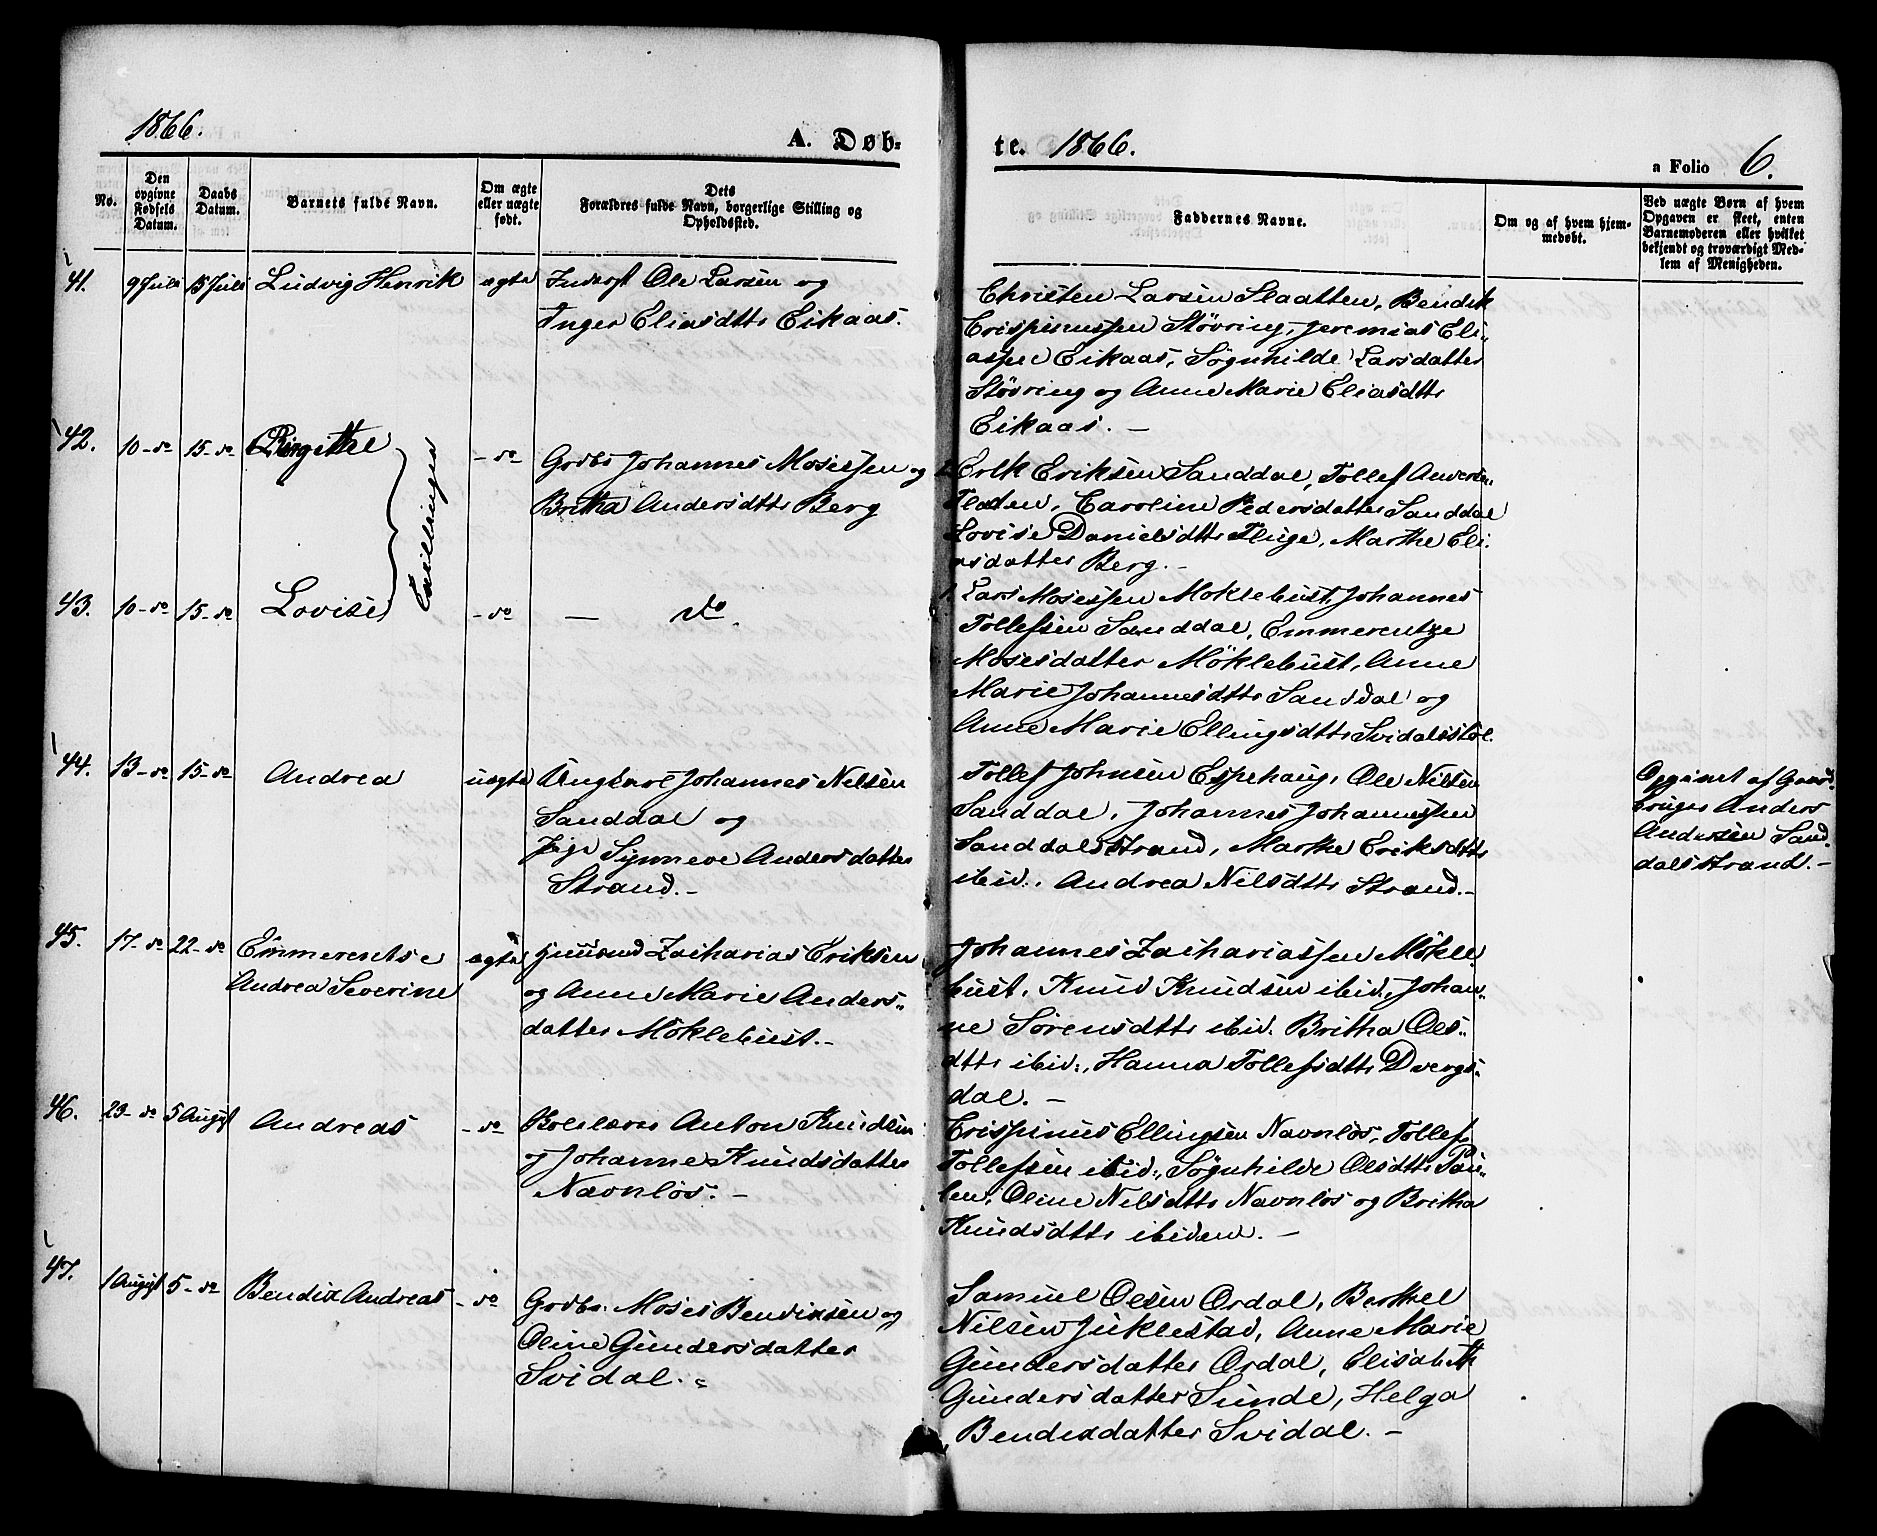 1866.
A. Døb-
te. 1866.
a Folio 6.
No.
Den opgivne Fødsels Datum.
Daabs Datum.
Barnets fulde Navn.
Om ægte eller uægte født.
Dets
Forældres fulde Navn, borgerlige Stilling og
Opholdssted.
Faddernes Navne.
Om og af hvem hjem-
medøbt.
Ved uægte Børn af hvem
Opgaven er skeet, enten
Barnemoderen eller hvilket
bekjendt og troværdigt Med-
lem af Menigheden.
41. 9 Juli 15 Juli Ludvig Henrik ægte Inderst Ole Larsen og
Inger Eliasdttr Eikaas.
Christen Larsen Slaatten, Bendik
Crispinussen Stövring, Jeremias Eli-
assen Eikaas, Sögnhilde Larsdatter
Stövring og Anne Marie Eliasdttr
Eikaas. -
42. 10 - do 15 - do Birgithe - do Grdbr Johannes Mosessen og
Britha Andersdttr Berg
Tvillinger
Erik Eriksen Sanddal, Tollef Andersen
Flaten, Caroline Pedersdatter Sanddal
Lovise Danielsdttr Fluge, Marthe Eli-
asdatter Berg. -
43. 10 - do 15 - do Lovise - do - do.
Lars Mosessen Moklebust, Johannes
Tollefsen Sanddal, Emmerentze
Mosesdatter Möklebust, Anne
Marie Johannesdttr Sanddal og
Anne Marie Ellingsdttr Svidalsstöl.
44. 13 - do 15 - do Andrea uægte Ungkarl Johannes Nelsen
Sanddal og
Pige Synneve Andersdatter
Strand. -
Tollef Johnsen Espehaug, Ole Nilsen
Sanddal, Johannes Johannessen
Sanddalsstrand, Marthe Eriksdttr
ibid., Andrea Nilsdttr Strand. -
Opgivet af Gaard-
bruger Anders
Andersen Sand-
dalsstrand. -
45. 17 - do 22 - do Emmerentse
Andrea Severine
ægte Huusmd Zacharias Eriksen
og Anne Marie Anders-
datter Möklebust. -
Johannes Zachariassen Mökle-
bust, Knud Knudsen ibid, Johan-
ne Sörensdttr ibid. Britha Ols-
dttr ibid., Hanna Tollefsdttr Dvergs-
dal. -
46. 23 - do 5 August Andreas - do Anton Knudsen
og Johanne Knudsdatter
Navnlös. -
Crispinus Ellingsen Navnlös, Tollef
Tollefsen ibid., Sögnhilde Olsdttr
Oline Nelsdttr Navnlös og Britha
Knudsdttr ibidem. -
47. 1 August 5 - do Bendix Andreas - do Grdbr. Moses Bendixsen og
Oline Gundersdatter
Svidal. -
Samuel Olsen Ordal, Berthel
Nilsen Juklestad, Anne Marie
Gundersdatter Ordal, Elisabeth
Gundersdatter Sunde, Helga
Bendixdatter Svidal. -